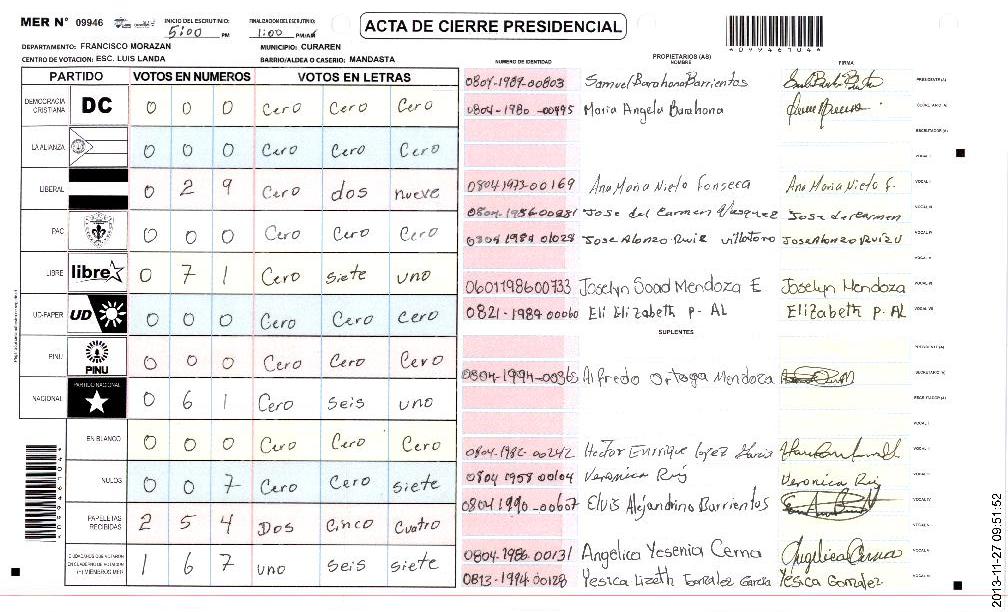 MER N° 09946
INICIO DEL ESCRUTINIO: 5:00 PM
FINALIZACION DEL ESCRUTINIO: 1:00 PM/AM
ACTA DE CIERRE PRESIDENCIAL
4099461044
DEPARTAMENTO: FRANCISCO MORAZAN MUNICIPIO: CURAREN
CENTRO DE VOTACION: ESC. LUIS LANDA BARRIO/ALDEA O CASERIO: MANDASTA
PARTIDO VOTOS EN NUMEROS VOTOS EN LETRAS
DEMOCRACIA CRISTIANA DC 0 0 0 Cero Cero Cero
LA ALIANZA 0 0 0 Cero Cero Cero
LIBERAL 0 2 9 Cero dos nueve
PAC 0 0 0 Cero Cero Cero
LIBRE libre 0 7 1 Cero siete uno
UD-FAPER UD 0 0 0 Cero Cero Cero
PINU PINU 0 0 0 Cero Cero Cero
NACIONAL PARTIDO NACIONAL 0 6 1 Cero seis uno
EN BLANCO 0 0 0 Cero Cero Cero
NULOS 0 0 7 Cero Cero siete
PAPELETAS RECIBIDAS 2 5 4 Dos Cinco Cuatro
CIUDADANOS QUE VOTARON EN CUADERNO DE VOTACION (+) MIEMBROS MER 1 6 7 uno seis siete
NUMERO DE IDENTIDAD PROPIETARIOS (AS) NOMBRE FIRMA
0804-1989-00803 Samuel Barahona Barrientos PRESIDENTE(A)
0804-1980-00495 Maria Angela Barahona SECRETARIO(A)
ESCRUTADOR (A)
VOCAL I
0804 1973-00169 Ana Maria Nieto Fonseca Ana Maria Nieto F.
Jose del Carmen Vasquez Jose del Carmen
0804 1984 01028 Jose Alonzo Ruiz Villatoro Jose Alonzo Ruiz V
0601198600733 Joselyn Soad Mendoza E Joselyn Mendoza
0821-1984 00060 Eli Elizabeth P. AL Elizabeth P. AL
SUPLENTES
PRESIDENTE(A)
0804-1994-00365 Alfredo Ortega Mendoza SECRETARIO (A)
ESCRUTADOR (A)
0804-1982-00242 Hector Enrrique Lopez Garcia
0804 1958 00104 Veronica Ruiz Veronica Ruiz
0804 1990-00607 Elvis Alejandrino Barrientos
0804-1986 00131 Angelica Yesenia Cerna Angelica Cerna
0813-1994 00128 Yesica Lizeth Gonzalez Garcia Yesica Gonzalez
4099461044
2013-11-27 09:51:52